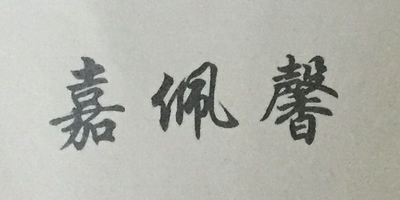 嘉佩馨